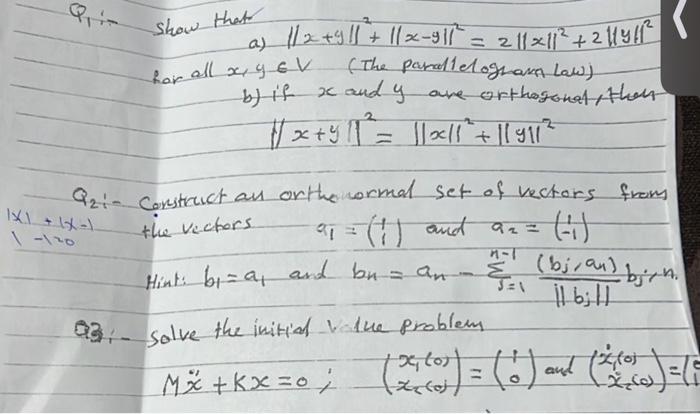 Q1:- Show that
a) ||x+y||² + ||x-y||² = 2||x||² + 2||y||²
for all x, y ∈ V (The parallelogram Law)
b) if x and y are orthogonal, then
||x+y||² = ||x||² + ||y||²
Q2:- Construct an orthonormal set of vectors from
|x| + |x-1
1 -1=0
the vectors a₁ = (1 1) and a₂ = (1 -1)
Hint: b₁ = a₁ and bₙ = aₙ - Σ_{j=1}^{n-1} (bj, aₙ) / ||bj|| bj, n.
Q3:- Solve the initial value problem
Mẍ + Kx = 0 ; (x₁(0) x₂(0)) = (1 0) and (ẋ₁(0) ẋ₂(0)) = (